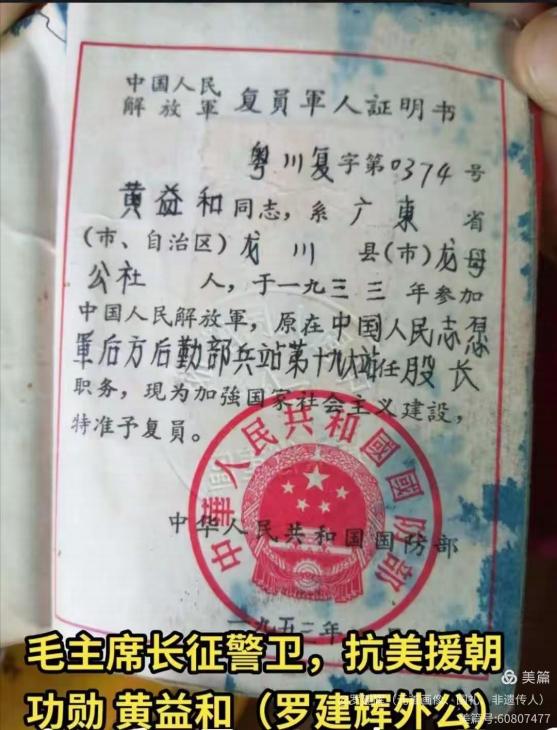 中国人民
解放軍 复員軍人証明书
粤川复字第0374号
黄益和同志，系广東省
（市、自治区）龙川县（市）龙母
公社 人，于一九三三年参加
中国人民解放軍，原在中国人民志愿
軍后方后勤部兵站第十九大站任股长
职务，現为加強国家社会主义建設，
特准予复員。
中華人民共和國國防部
中华人民共和国国防部
一九五三年
毛主席长征警卫，抗美援朝
功勋 黄益和（罗建辉外公）
美篇
非遗传人）
美篇号:60807477